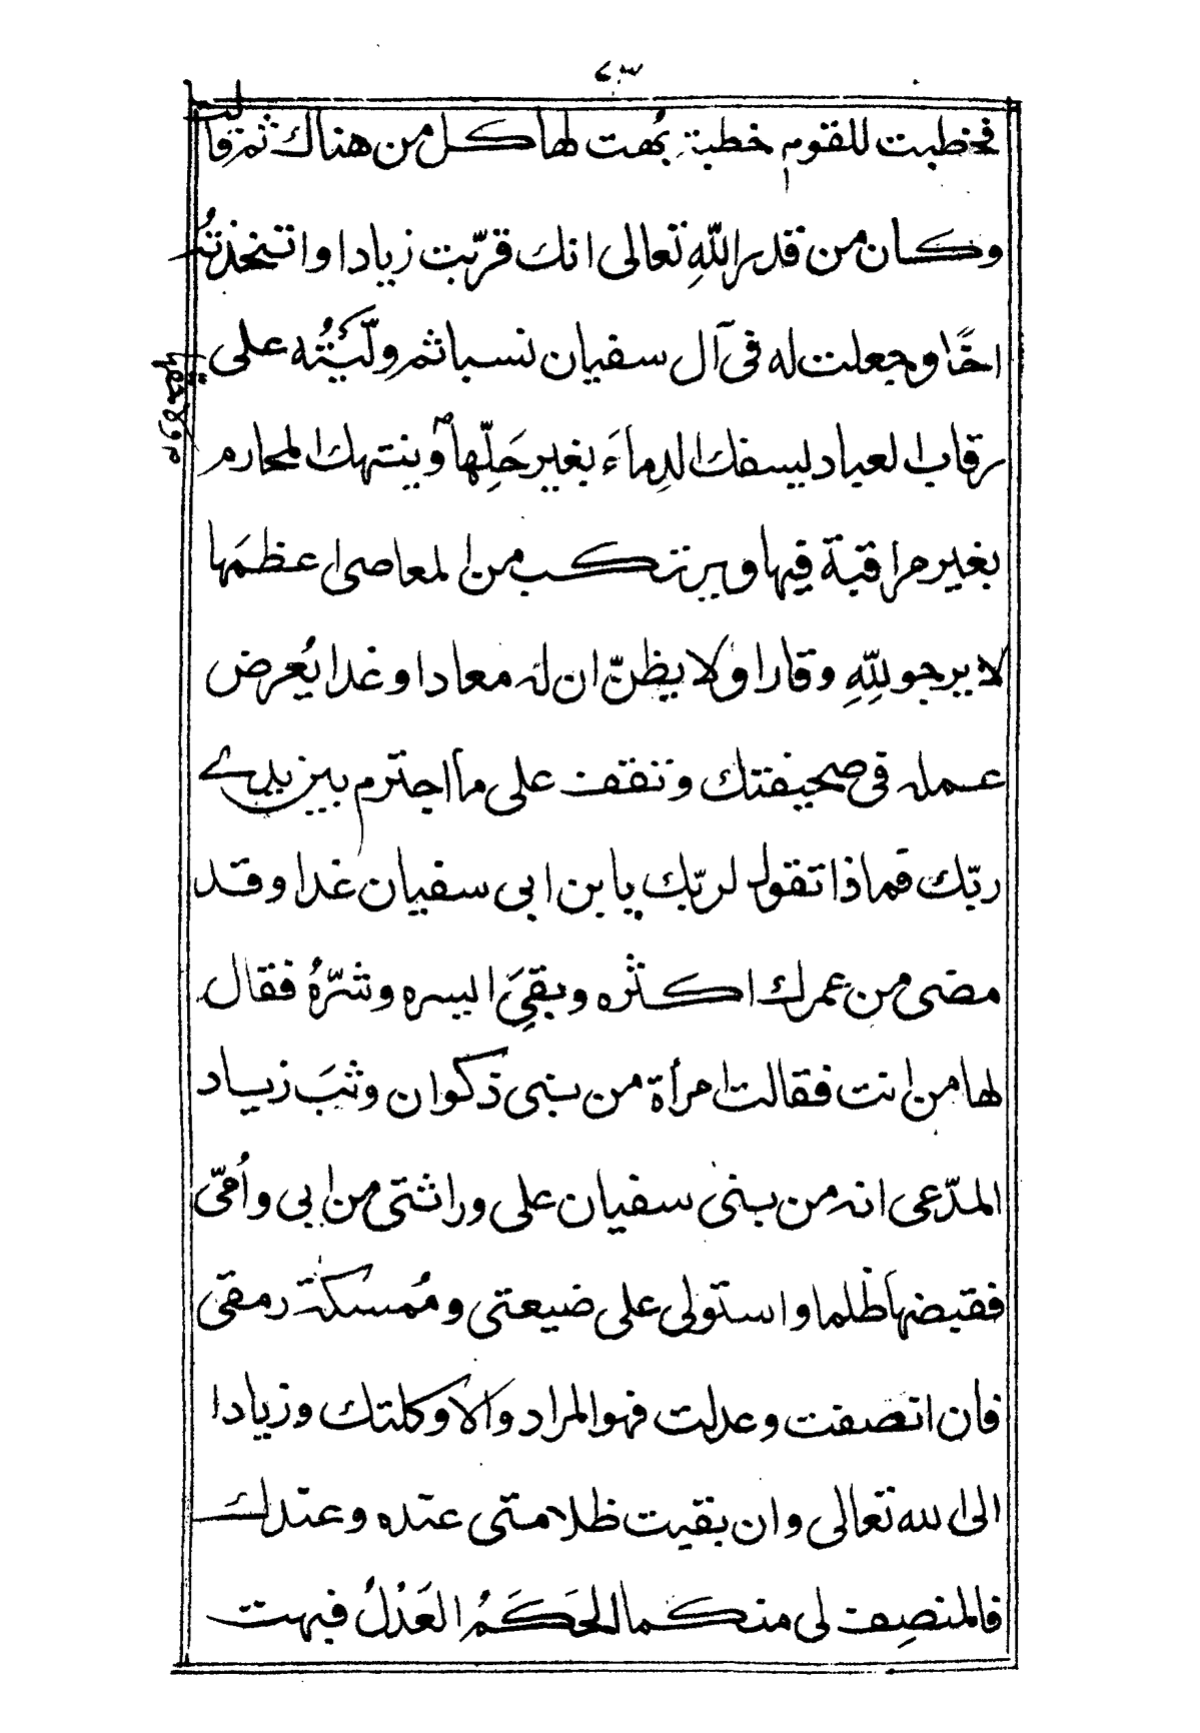 ٤٣
فخطبت للقوم خطبة بُهت لها كل من هناك ثم قالت
وكان من قدر اللهِ تعالى انك قرّبت زيادا واتخذتهُ
اخًا وجعلت له فى آل سفيان نسبا ثم ولَّيْتُه على
رقاب العباد ليسفك الدِماءَ بغير حَلِّها وينتهك المحارم
بغير مراقبة فيها ويرتكب من المعاصى اعظمَها
لا يرجو للهِ وقارا ولا يظنّ ان له معادا وغدا يُعرض
عمله فى صحيفتك وتقف على ما اجترم بين يدى
ربّك فماذا تقول لربّك يا بن ابى سفيان غدا وقد
مضى من عمرك اكثره وبقىَ ايسره وشرّهُ فقال
لها من انت فقالت امرأة من بنى ذكوان وثبَ زياد
المدّعى انه من بنى سفيان على وراثتى من ابى واُمّى
فقبضها ظلما واستولى على ضيعتى ومُمسكة رمقى
فان انصفت وعدلت فهو المراد والا وكلتك وزيادا
الى الله تعالى وان بقيت ظلامتى عنده وعندك
فالمنصِف لى منكما الحَكَمُ العَدْلُ فبهت